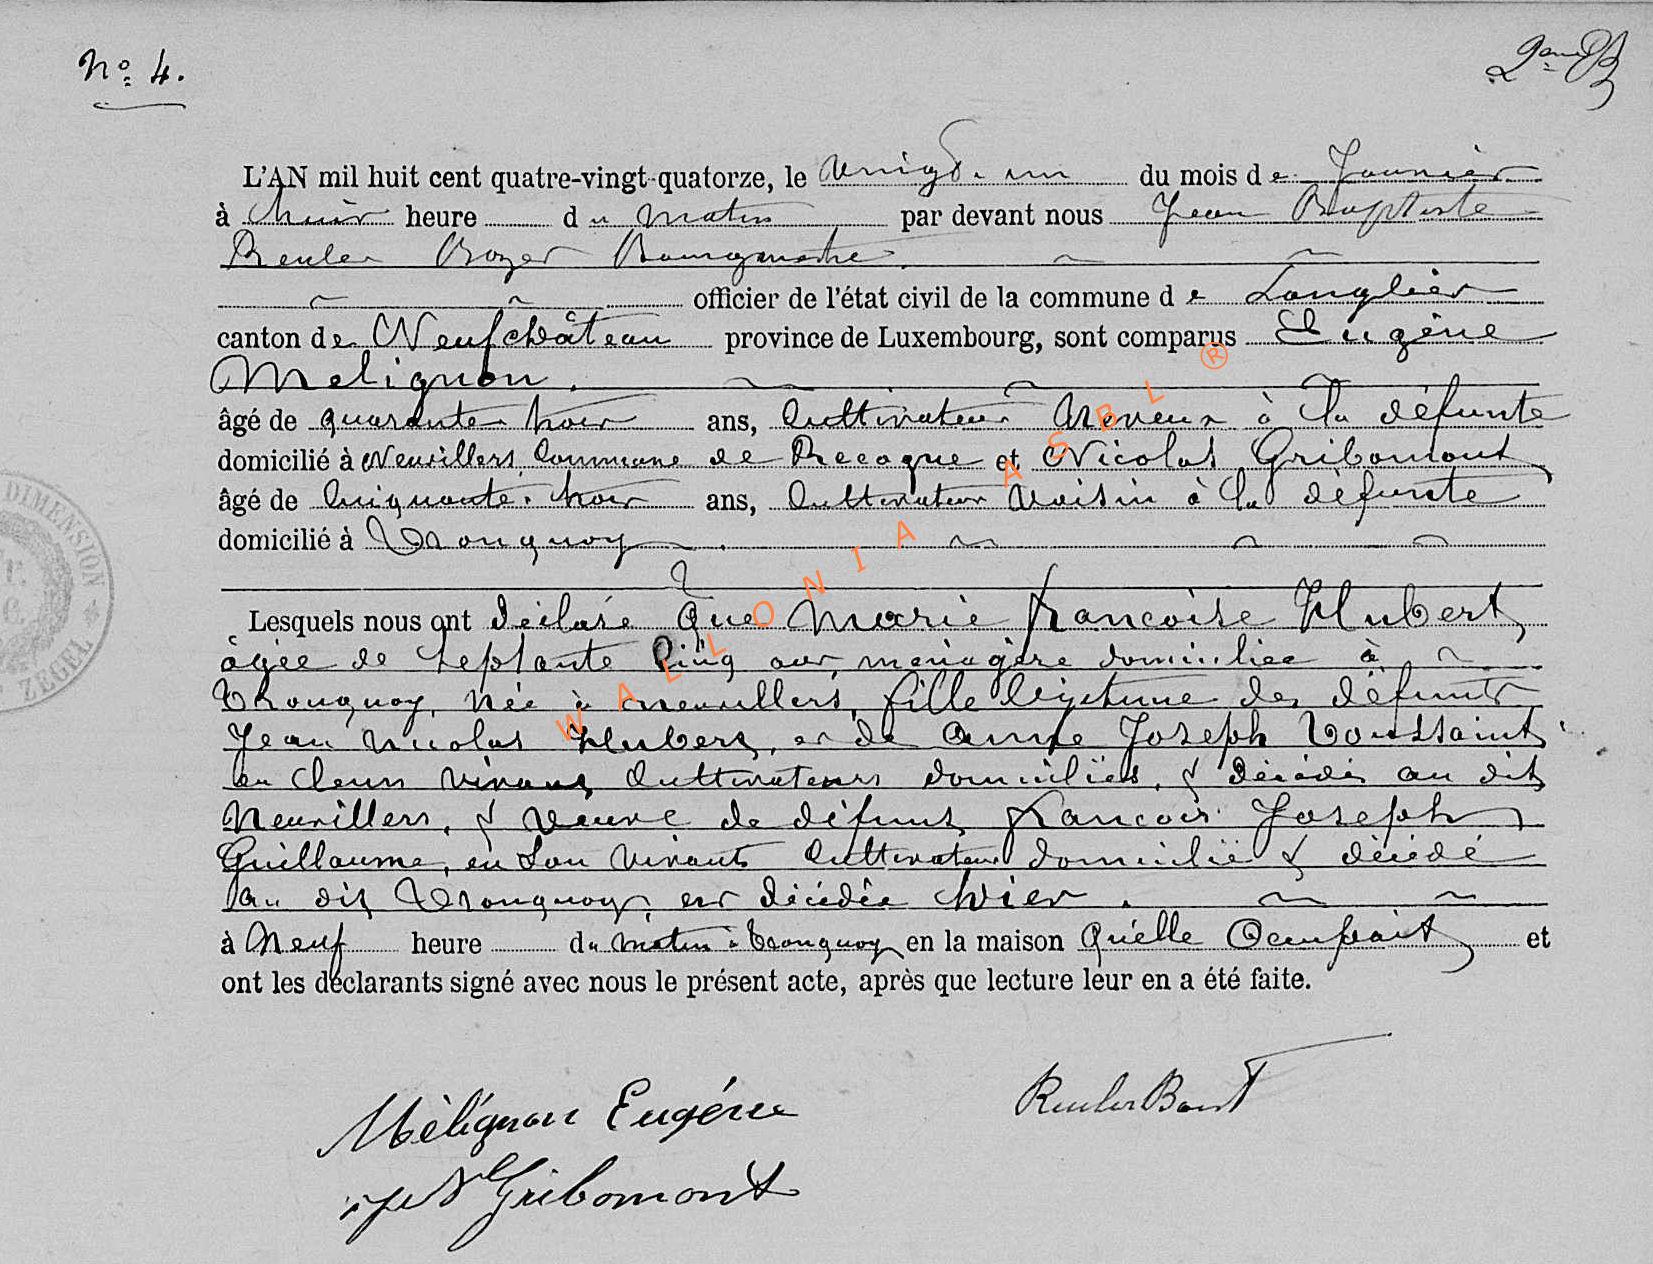 N° 4.
L'AN mil huit cent quatre-vingt-quatorze, le vingt-un du mois de Janvier
à huit heure du matin par devant nous Jean Baptiste
Reuler Royer Bourgmestre
officier de l'état civil de la commune de Longlier
canton de Neufchâteau province de Luxembourg, sont comparus Eugène
Melignon.
âgé de quarante trois ans, Cultivateur Neveux à la défunte
domicilié à Neuvillers, Commune de Recogne et Nicolas Gribomont
âgé de Cinquante-trois ans, Cultivateur Voisin à la défunte
domicilié à Tronquoy.
Lesquels nous ont déclaré Que Marie françoise Hubert,
âgée de septante Cinq ans menagère domiciliée à
Tronquoy, née à neuvillers, fille légitime des défunts
Jean Nicolas Hubert, et de Anne Joseph Toussaint
en leur vivant Cultivateurs domiciliés, & décédés au dit
Neuvillers, & veuve de défunt françois Joseph
Guillaume, en son vivant Cultivateur domicilié & décédé
au dit Tronquoy, est décédée hier.
à Neuf heure du matin à Tronquoy en la maison Qu'elle Occupait et
ont les déclarants signé avec nous le présent acte, après que lecture leur en a été faite.
Mèlignon Eugène
Reuler Bapt
Gribomont
WALLONIA ASBL ®
DIMENSION
ZEGEL